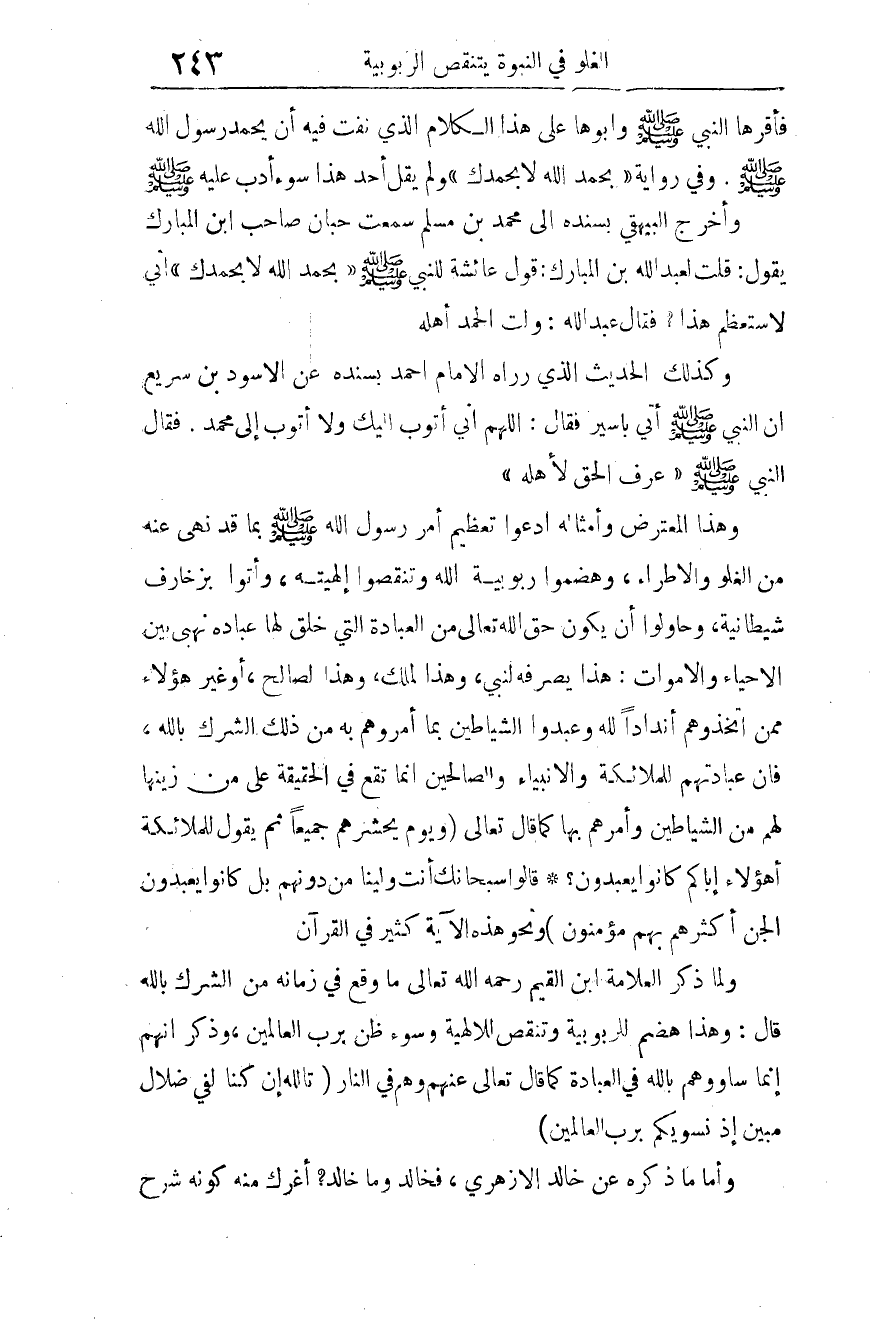 الغلو في النبوة يتنقص الربوبية ٢٤٣
فأقرها النبي ﷺ وابوها على هذا الكلام الذي نفت فيه أن يحمد رسول الله
ﷺ . وفي رواية « بحمد الله لا بحمدك » ولم يقل أحد هذا سوء أدب عليه ﷺ
وأخرج البيهقي بسنده الى محمد بن مسلم سمعت حبان صاحب ابن المبارك
يقول : قلت لعبد الله بن المبارك : قول عائشة للنبي ﷺ « بحمد الله لا بحمدك » اني
لاستعظم هذا ? فقال عبد الله : ولت الحمد أهله
وكذلك الحديث الذي رراه الامام احمد بسنده عن الاسود بن سريع
ان النبي ﷺ أتي باسير فقال : اللهم اني أتوب اليك ولا أتوب إلى محمد . فقال
النبي ﷺ « عرف الحق لأهله »
وهذا المعترض وأمثاله ادعوا تعظيم أمر رسول الله ﷺ بما قد نهى عنه
من الغلو والاطراء ، وهضموا ربوبية الله وتنقصوا إلهيته ، وأتوا بزخارف
شيطانية ، وحاولوا أن يكون حق الله تعالى من العبادة التي خلق لها عباده نهبى بين
الاحياء والاموات : هذا يصرفه لنبي ، وهذا لملك ، وهذا لصالح ، أوغير هؤلاء
ممن اتخذوهم أنداداً لله وعبدوا الشياطين بما أمروهم به من ذلك الشرك بالله ،
فان عبادتهم للملائكة والانبياء والصالحين انما تقع في الحقيقة على من زينها
لهم من الشياطين وأمرهم بها كما قال تعالى (ويوم يحشرهم جميعاً ثم يقول للملائكة
أهؤلاء إياكم كانوا يعبدون ؟ * قالوا سبحانك أنت ولينا من دونهم بل كانوا يعبدون
الجن أكثرهم بهم مؤمنون ) ونحو هذه الآية كثير في القرآن
ولما ذكر العلامة ابن القيم رحمه الله تعالى ما وقع في زمانه من الشرك بالله
قال : وهذا هضم للربوبية وتنقص للالهية وسوء ظن برب العالمين ، وذكر انهم
إنما ساووهم بالله في العبادة كما قال تعالى عنهم وهم في النار ( تالله إن كنا لفي ضلال
مبين إذ نسويكم برب العالمين)
وأما ما ذكره عن خالد الازهري ، فخالد وما خالد ? أغرك منه كونه شرح